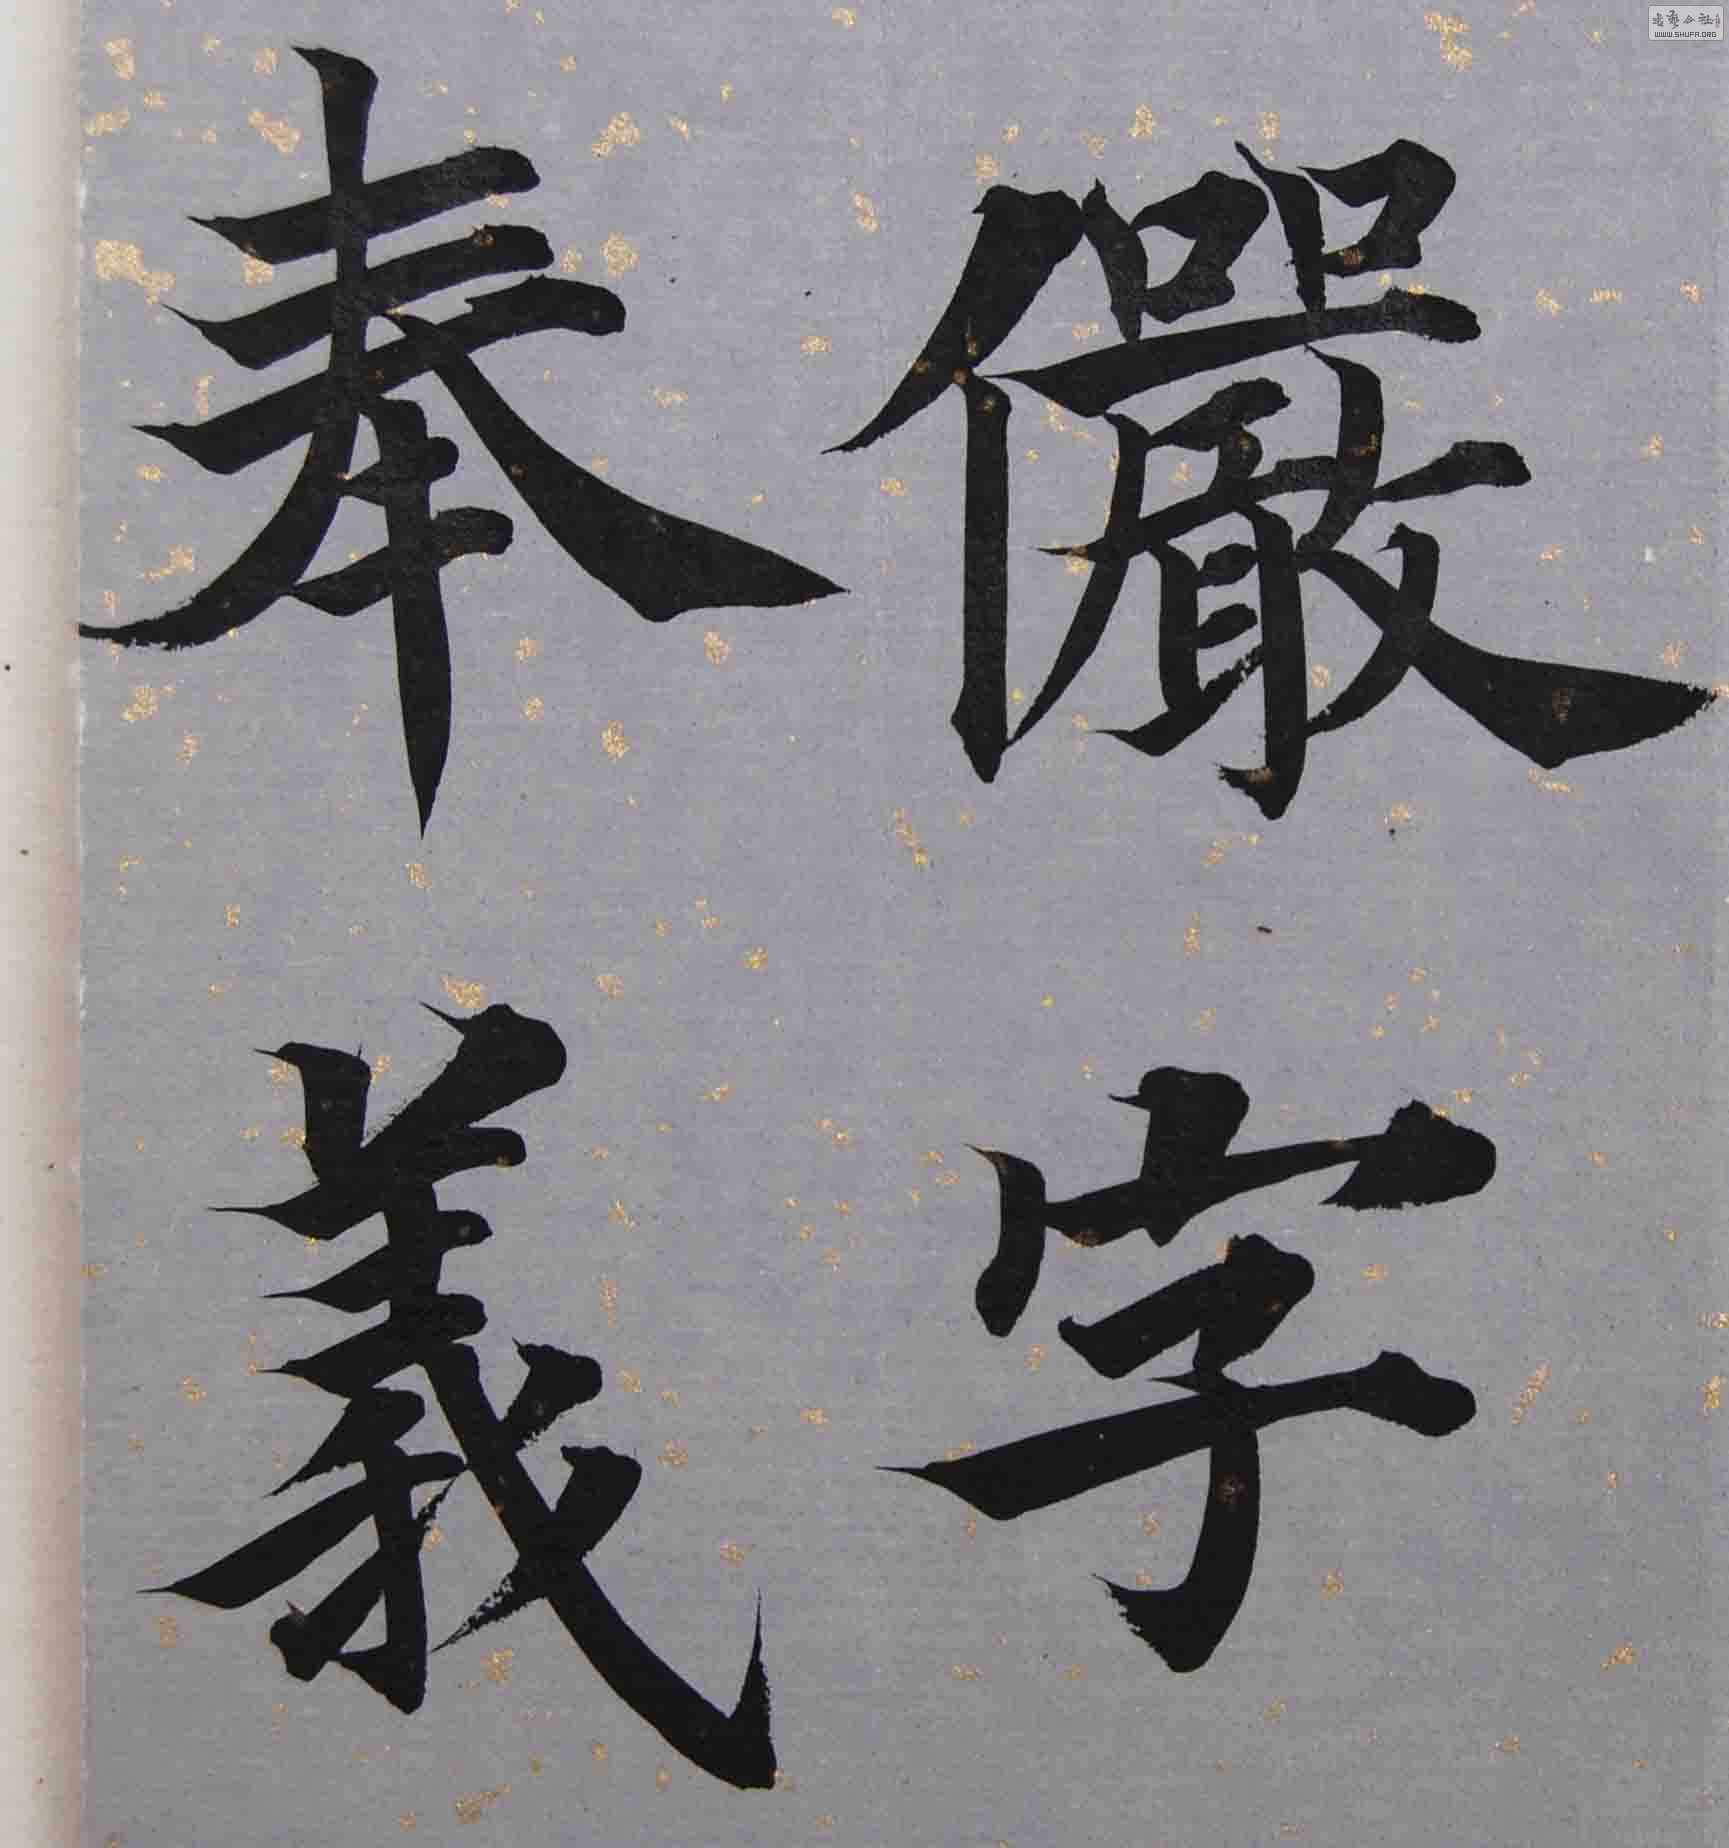 儼字
奉義
書藝公社
WWW.SHUFA.ORG